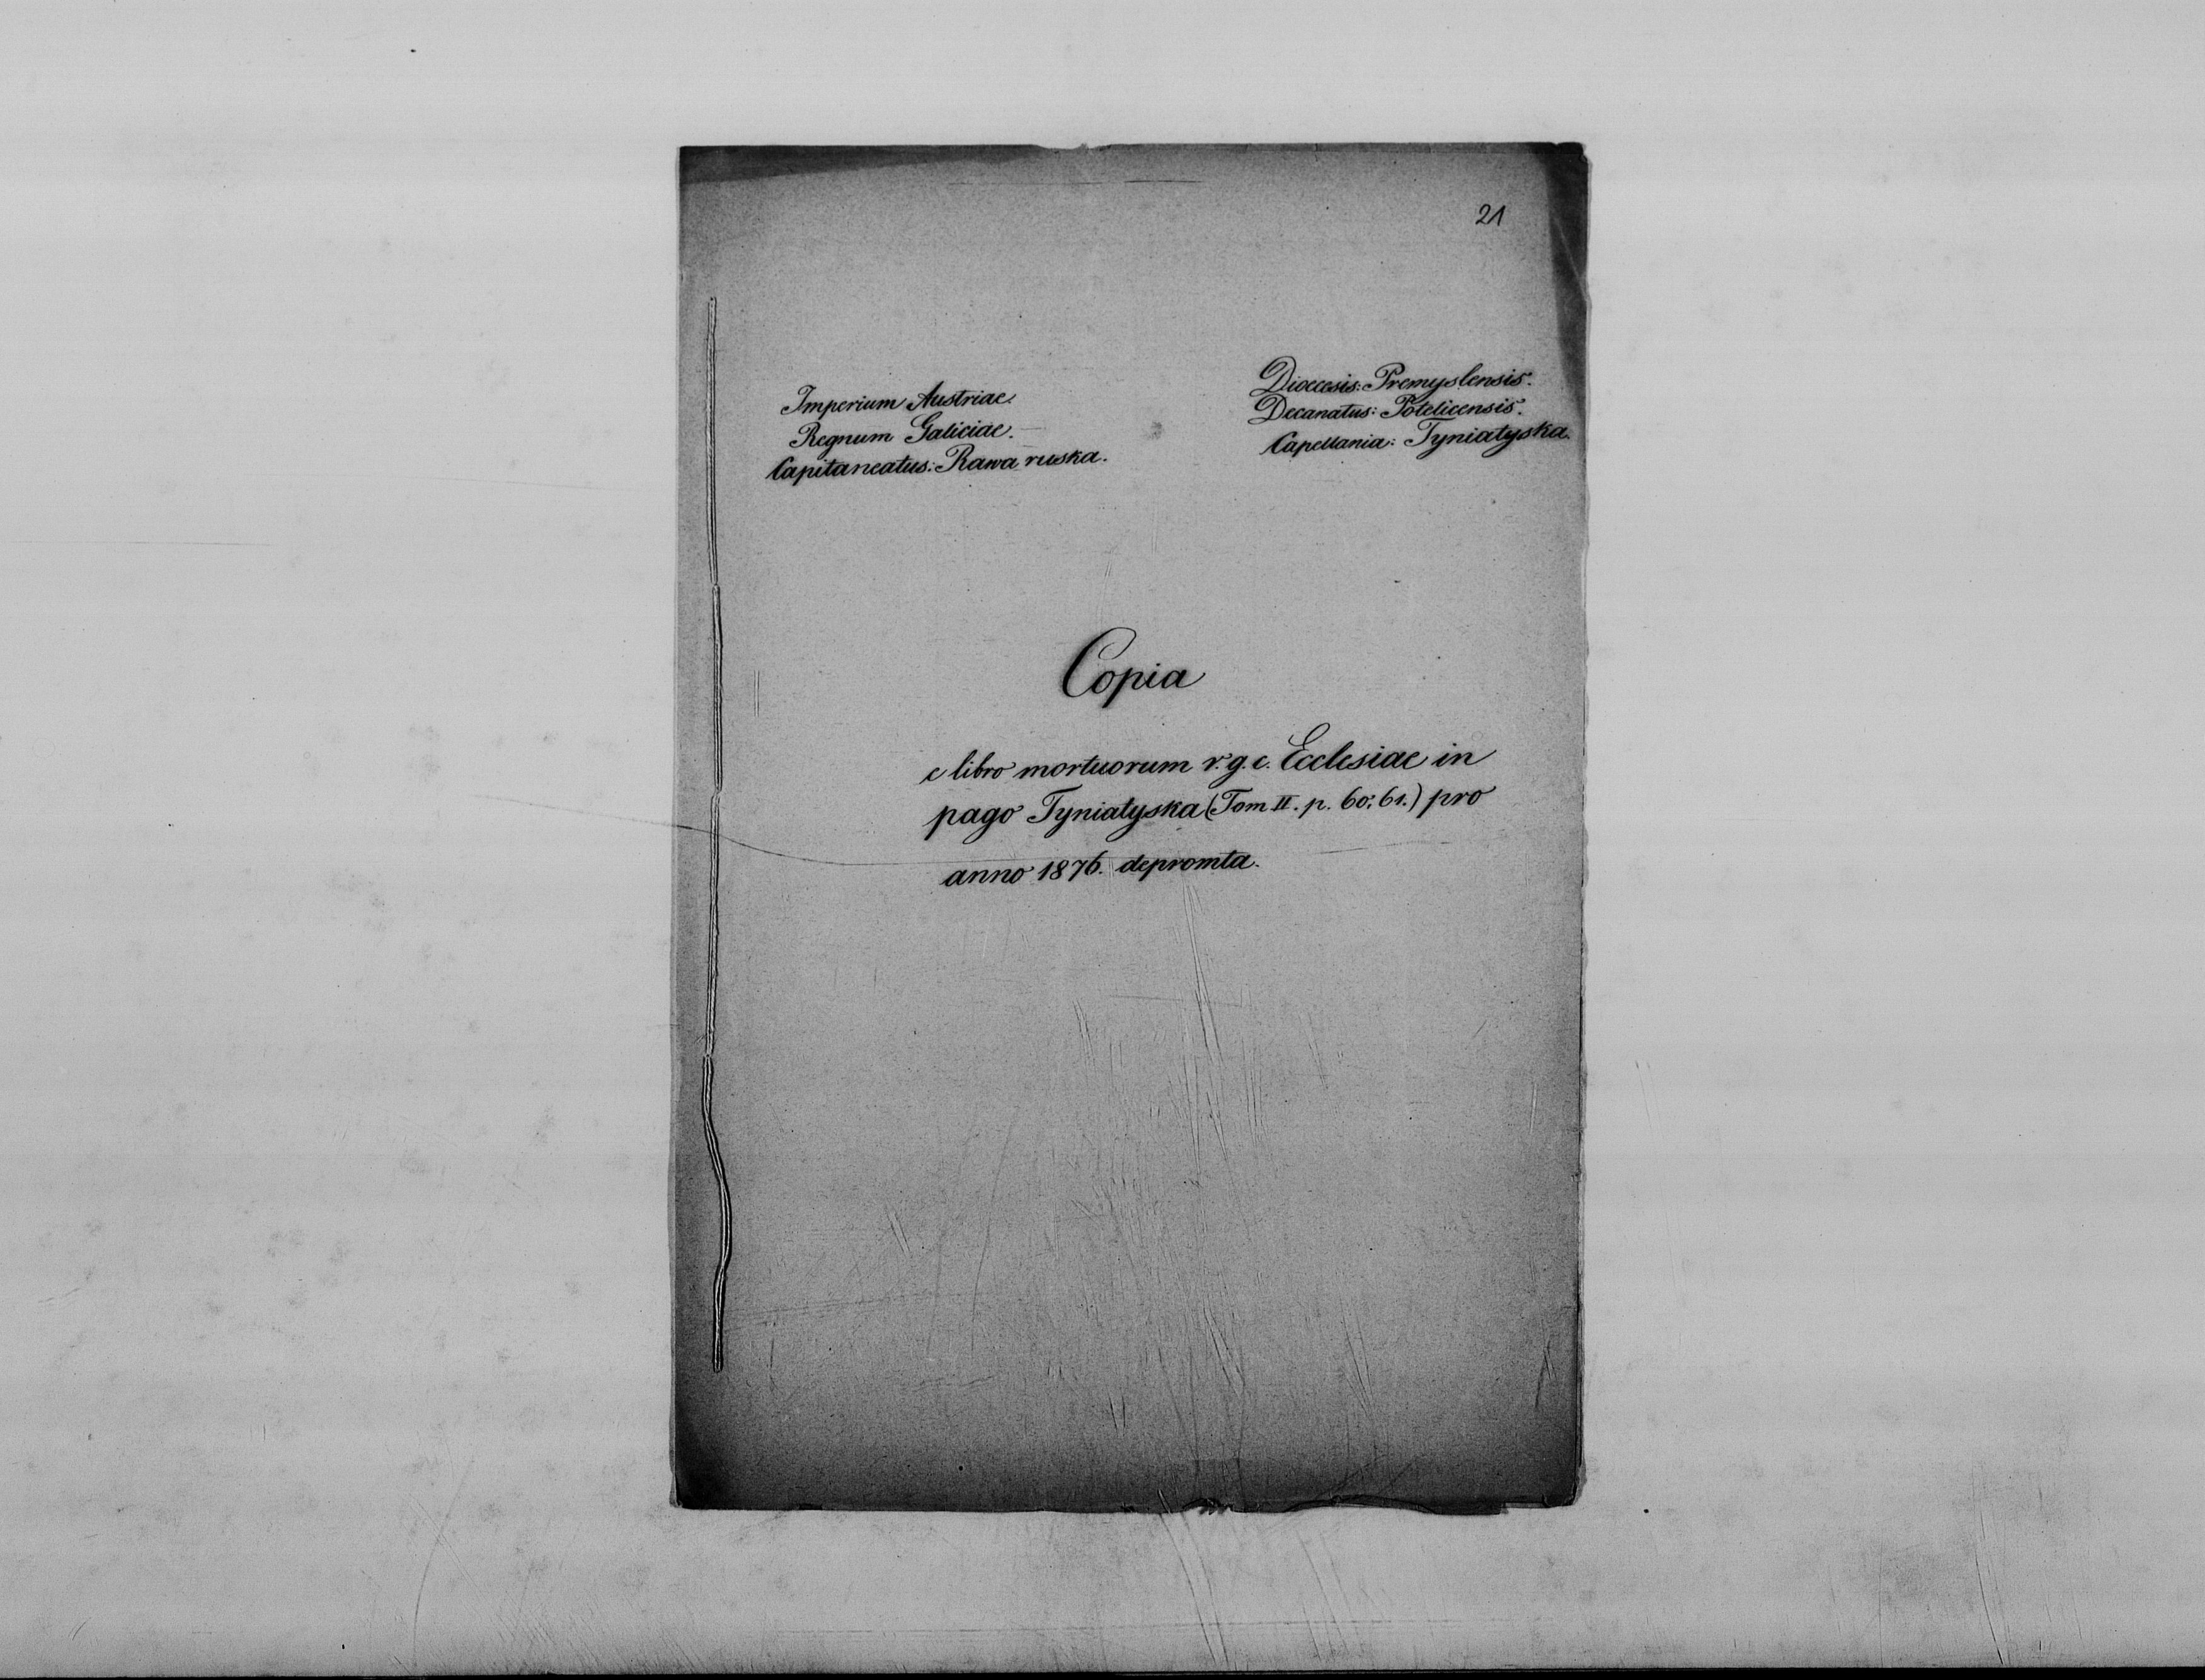 21
Imperium Austriae.
Regnum Galiciae.
Capitaneatus: Rawa ruska.
Dioecesis: Premyslensis.
Decanatus: Potelicensis.
Capellania: Tyniatyska.
Copia
e libro mortuorum r. g. c. Ecclesiae in
pago Tyniatyska (Tom II. p. 60; 61.) pro
anno 1876. depromta.